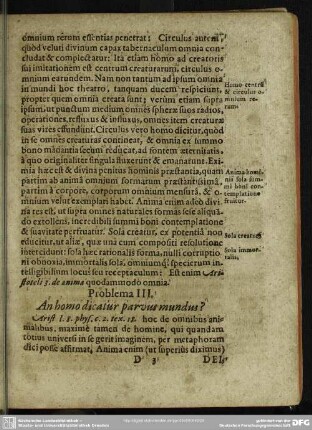 omnium rerum essentias penetrat: Circulus autem,
quòd veluti divinum capax tabernaculum omnia con-
cludat & complectatur: Ita etiam homo ad creatoris
sui imitationem est centrum creaturarum, circulus o-
mnium earundem. Nam non tantum ad ipsum omnia
in mundi hoc theatro, tanquam ducem respiciunt,
propter quem omnia creata sunt; verùm etiam supra
ipsum, ut punctum medium omnes spheræ suos radios,
operationes, refluxus & influxus, omnes item creaturæ
suas vires effundunt. Circulus vero homo dicitur, quòd
in se omnes creaturas contineat, & omnia ex summo
bono mādantia secum reducat, ad fontem æternitatis,
à quo originaliter singula fluxerunt & emanarunt. Exi-
mia hæc est & divina penitus hominis præstantia, quam
partim ab animâ omnium formarum præstantissimâ,
partim à corpore, corporum omnium mensurâ, & o-
mnium velut exemplari habet. Anima enim adeò divi-
na res est, ut supra omnes naturales formas sese aliquā-
do extollens, incredibili summi boni contemplatione
& suavitate perfruatur. Sola creatur, ex potentiâ non
educitur, ut aliæ, quæ unà cum compositi resolutione
intercidunt: sola hæc rationalis forma, nulli corruptio-
ni obnoxia, immortalis sola, omniumq; specierum in-
telligibilium locus seu receptaculum: Est enim Ari-
stoteli 3. de anima quodammodo omnia.
Homo centrū
& circulus o-
mnium re-
rum.
Anima homi-
nis sola sum-
mi boni con-
templatione
fruitur.
Sola creatur.
Sola immor-
talis.
Problema III.
An homo dicatur parvus mundus?
Arist. l. 8. phys. c. 2. tex. 17. hoc de omnibus ani-
malibus, maximè tamen de homine, qui quandam
totius universi in se gerit imaginem, per metaphoram
dici posse affirmat, Anima enim (ut superiùs diximus)
D 3 DEI,